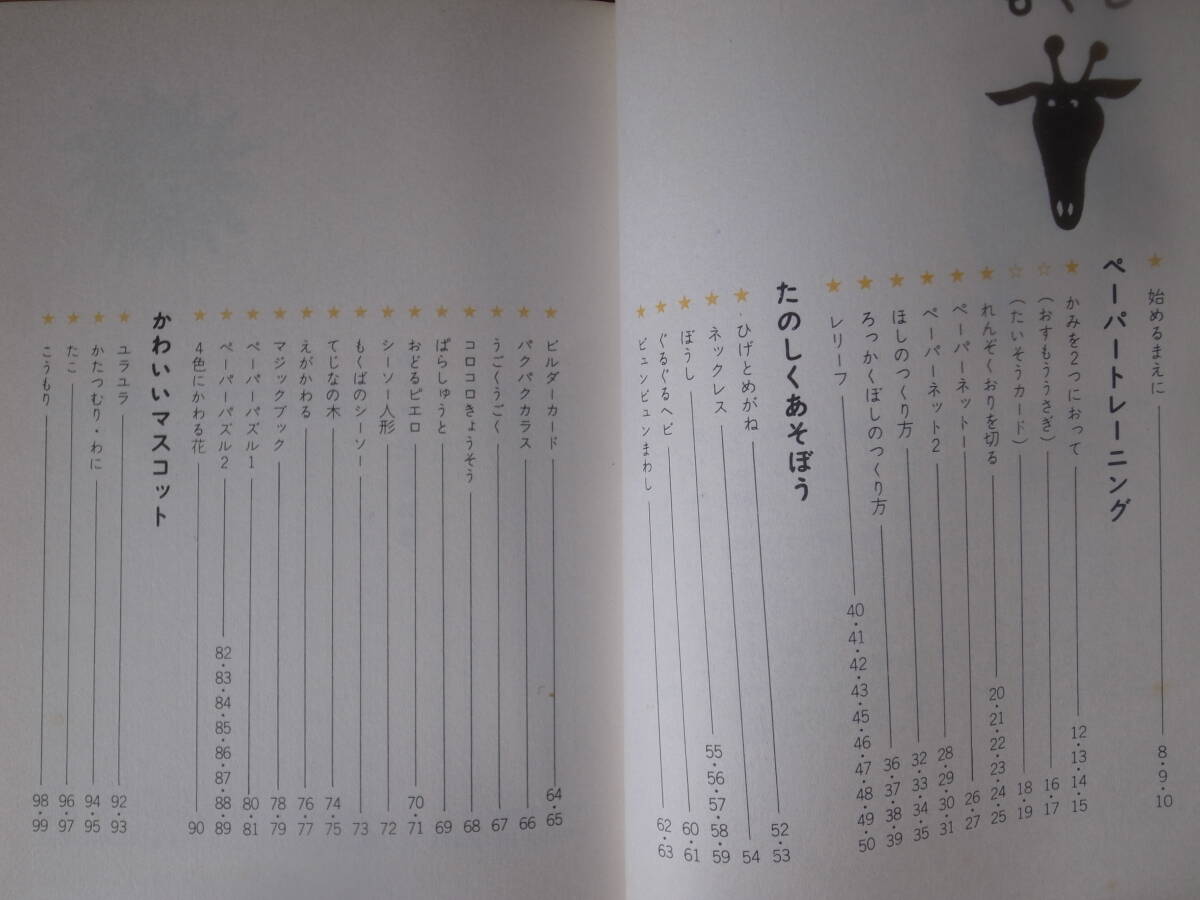 もくじ
★ 始めるまえに 8・9・10
ペーパートレーニング
★ かみを2つにおって 12・13・14・15
☆ (おすもううさぎ) 16・17
☆ (たいそうカード) 18・19
★ れんぞくおりを切る 20・21・22・23・24・25
★ ペーパーネット1 26・27
★ ペーパーネット2 28・29・30・31
★ ほしのつくり方 32・33・34・35
★ ろっかくぼしのつくり方 36・37・38・39
★ レリーフ 40・41・42・43・45・46・47・48・49・50
たのしくあそぼう
★ ひげとめがね 52・53
★ ネックレス 54
★ ぼうし 55・56・57・58・59
★ ぐるぐるヘビ 60・61
★ ビュンビュンまわし 62・63
★ ビルダーカード 64・65
★ パクパクカラス 66
★ うごくうごく 67
★ コロコロきょうそう 68
★ ぱらしゅうと 69
★ おどるピエロ 70・71
★ シーソー人形 72
★ もくばのシーソー 73
★ てじなの木 74・75
★ えがかわる 76・77
★ マジックブック 78・79
★ ペーパーパズル1 80・81
★ ペーパーパズル2 82・83・84・85・86・87・88・89
★ 4色にかわる花 90
かわいいマスコット
★ ユラユラ 92・93
★ かたつむり・わに 94・95
★ たこ 96・97
★ こうもり 98・99